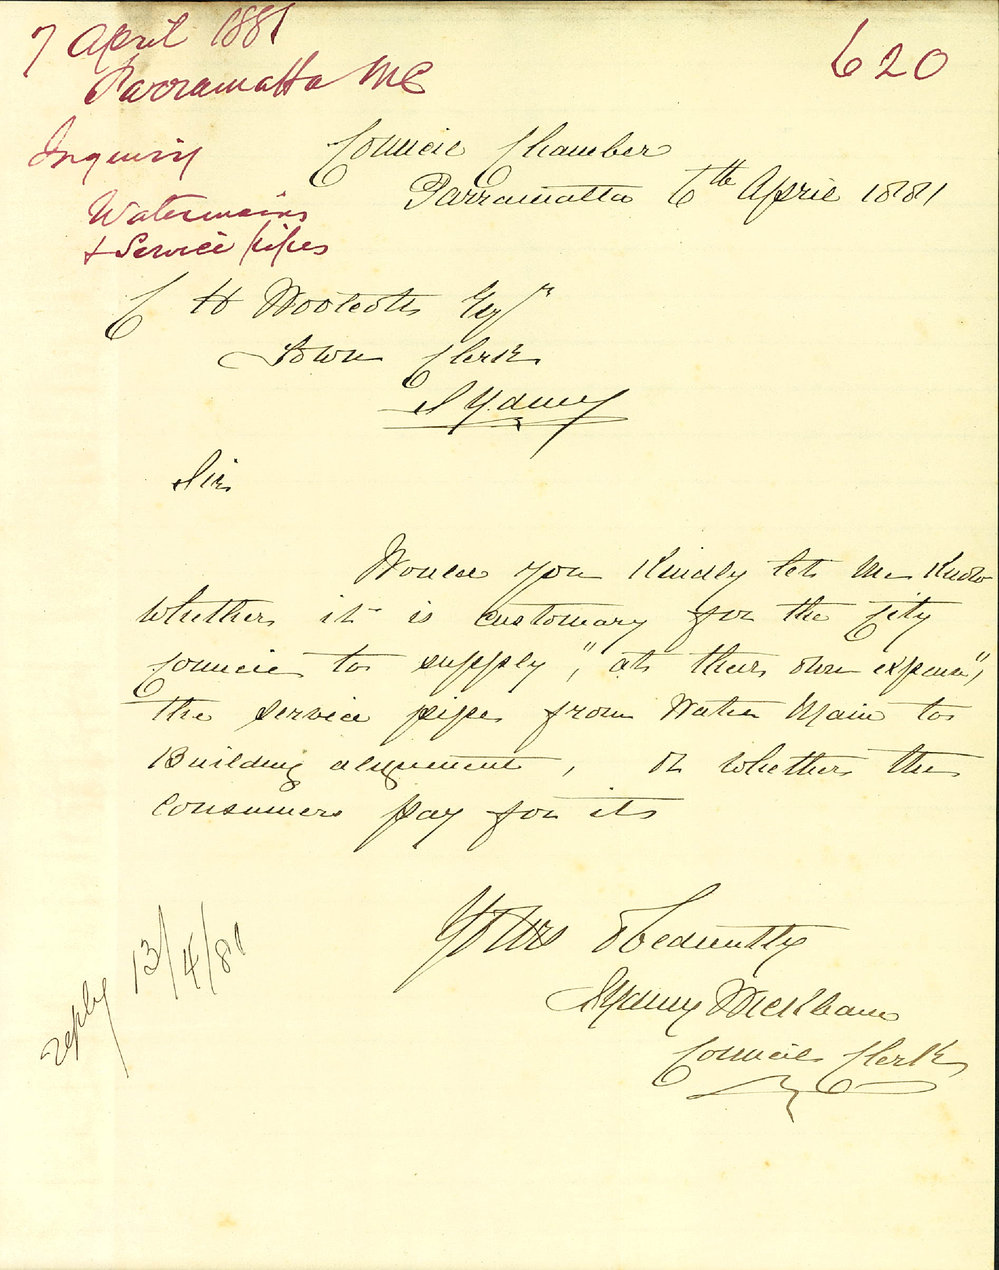 7 April 1881
Parramatta MC
620
Inquiry
Watermains
& Service pipes
Council Chamber
Parramatta 6th April 1881
C H Woolcott Esqr
Town Clerk
Sydney
Sir
Would you Kindly let me Know
whether it is customary for the City
Council to supply ", at their own expense",
the service pipes from Water Main to
Building alignment, or whether the
Consumers pay for it
Yours Obediently
Sydney
Council Clerk
reply 13/4/81